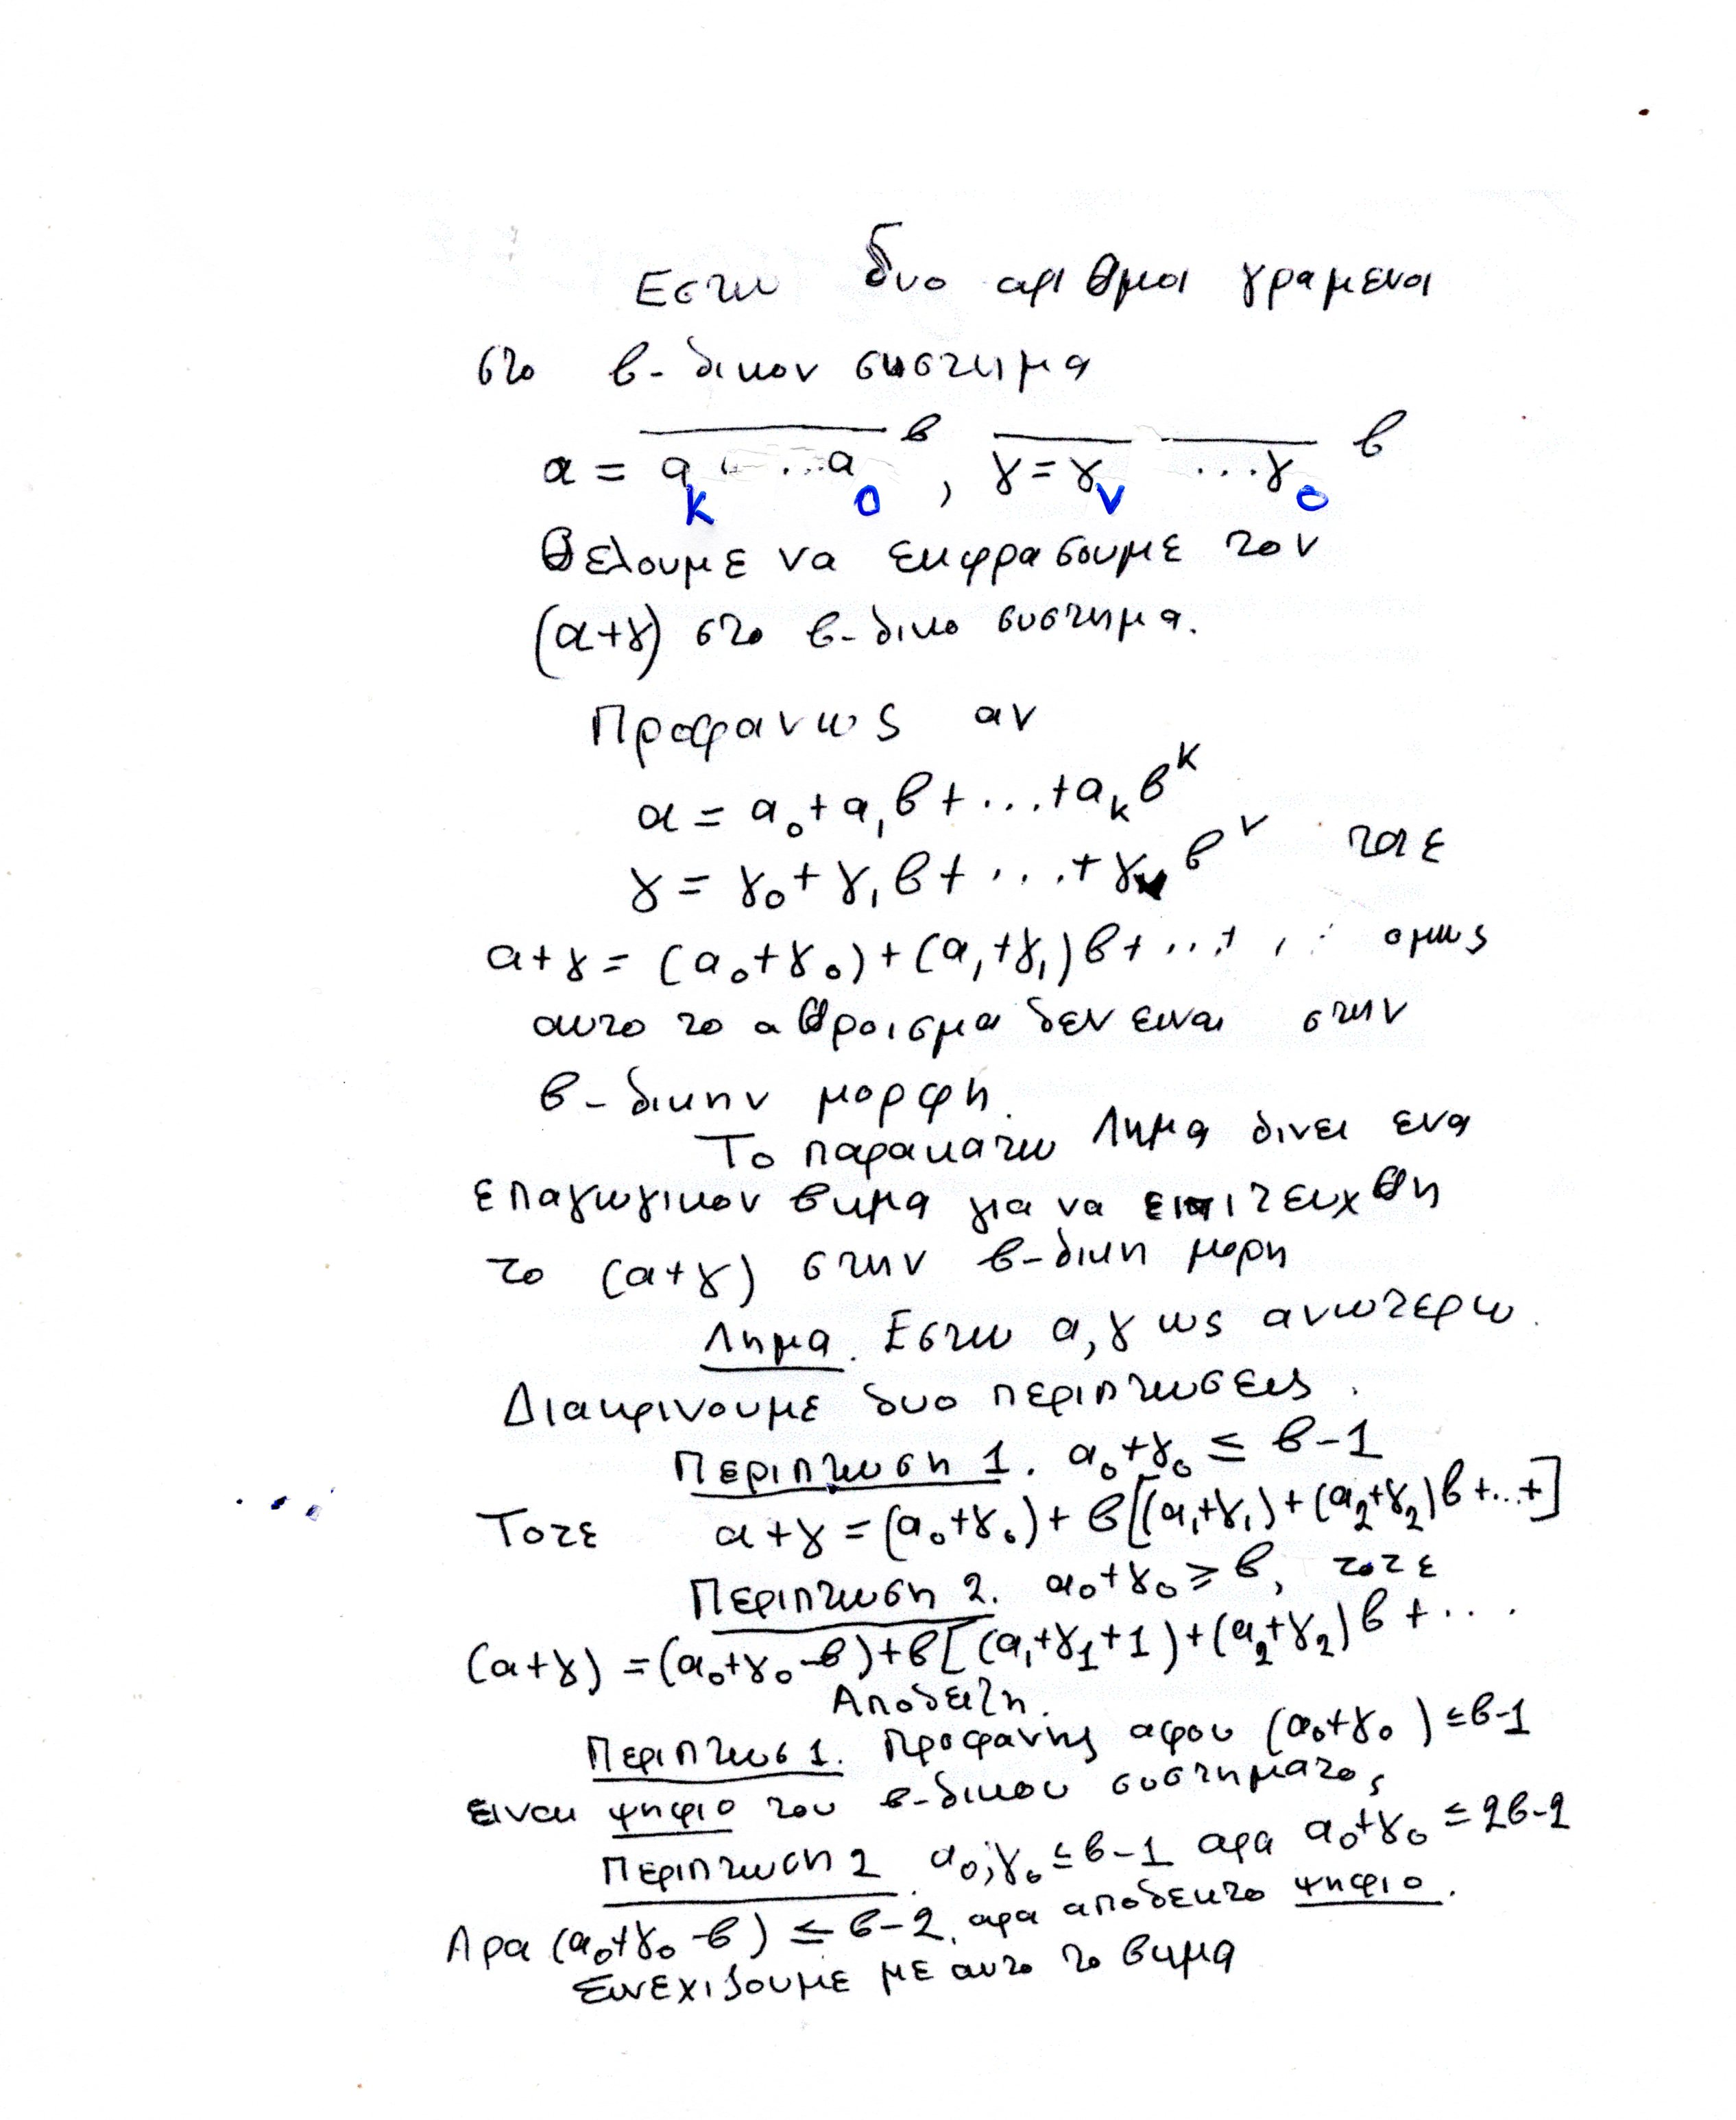 Εστω δυο αριθμοι γραμενοι
στο β-δικον συστημα
α = a_k ... a_0 ^β, γ = γ_ν ... γ_0 ^β
Θελουμε να εκφρασουμε τον
(α+γ) στο β-δικο συστημα.
Προφανως αν
α = a_0 + a_1 β + ... + a_k β^k
γ = γ_0 + γ_1 β + ... + γ_ν β^ν τοτε
α+γ = (a_0+γ_0) + (a_1+γ_1)β + ...+ ομως
αυτο το αθροισμα δεν ειναι στην
β-δικην μορφη.
Το παρακατω Λημα δινει ενα
επαγωγικον βημα για να επιτευχθη
το (α+γ) στην β-δικη μορη
Λημα. Εστω α, γ ως ανωτερω.
Διακρινουμε δυο περιπτωσεις.
Περιπτωση 1. a_0+γ_0 ≤ β-1
Τοτε α+γ = (a_0+γ_0) + β[(a_1+γ_1) + (a_2+γ_2)β+...+]
Περιπτωση 2. a_0+γ_0 ≥ β, τοτε
(α+γ) = (a_0+γ_0-β)+β[(a_1+γ_1+1)+(a_2+γ_2)β+....
Αποδειξη.
Περιπτωσ 1. Προφανης αφου (a_0+γ_0) ≤ β-1
ειναι ψηφιο του β-δικου συστηματος
Περιπτωση 2. a_0, γ_0 ≤ β-1 αρα a_0+γ_0 ≤ 2β-2
Αρα (a_0+γ_0-β) ≤ β-2, αρα αποδεκτο ψηφιο.
Συνεχιζουμε με αυτο το βημα